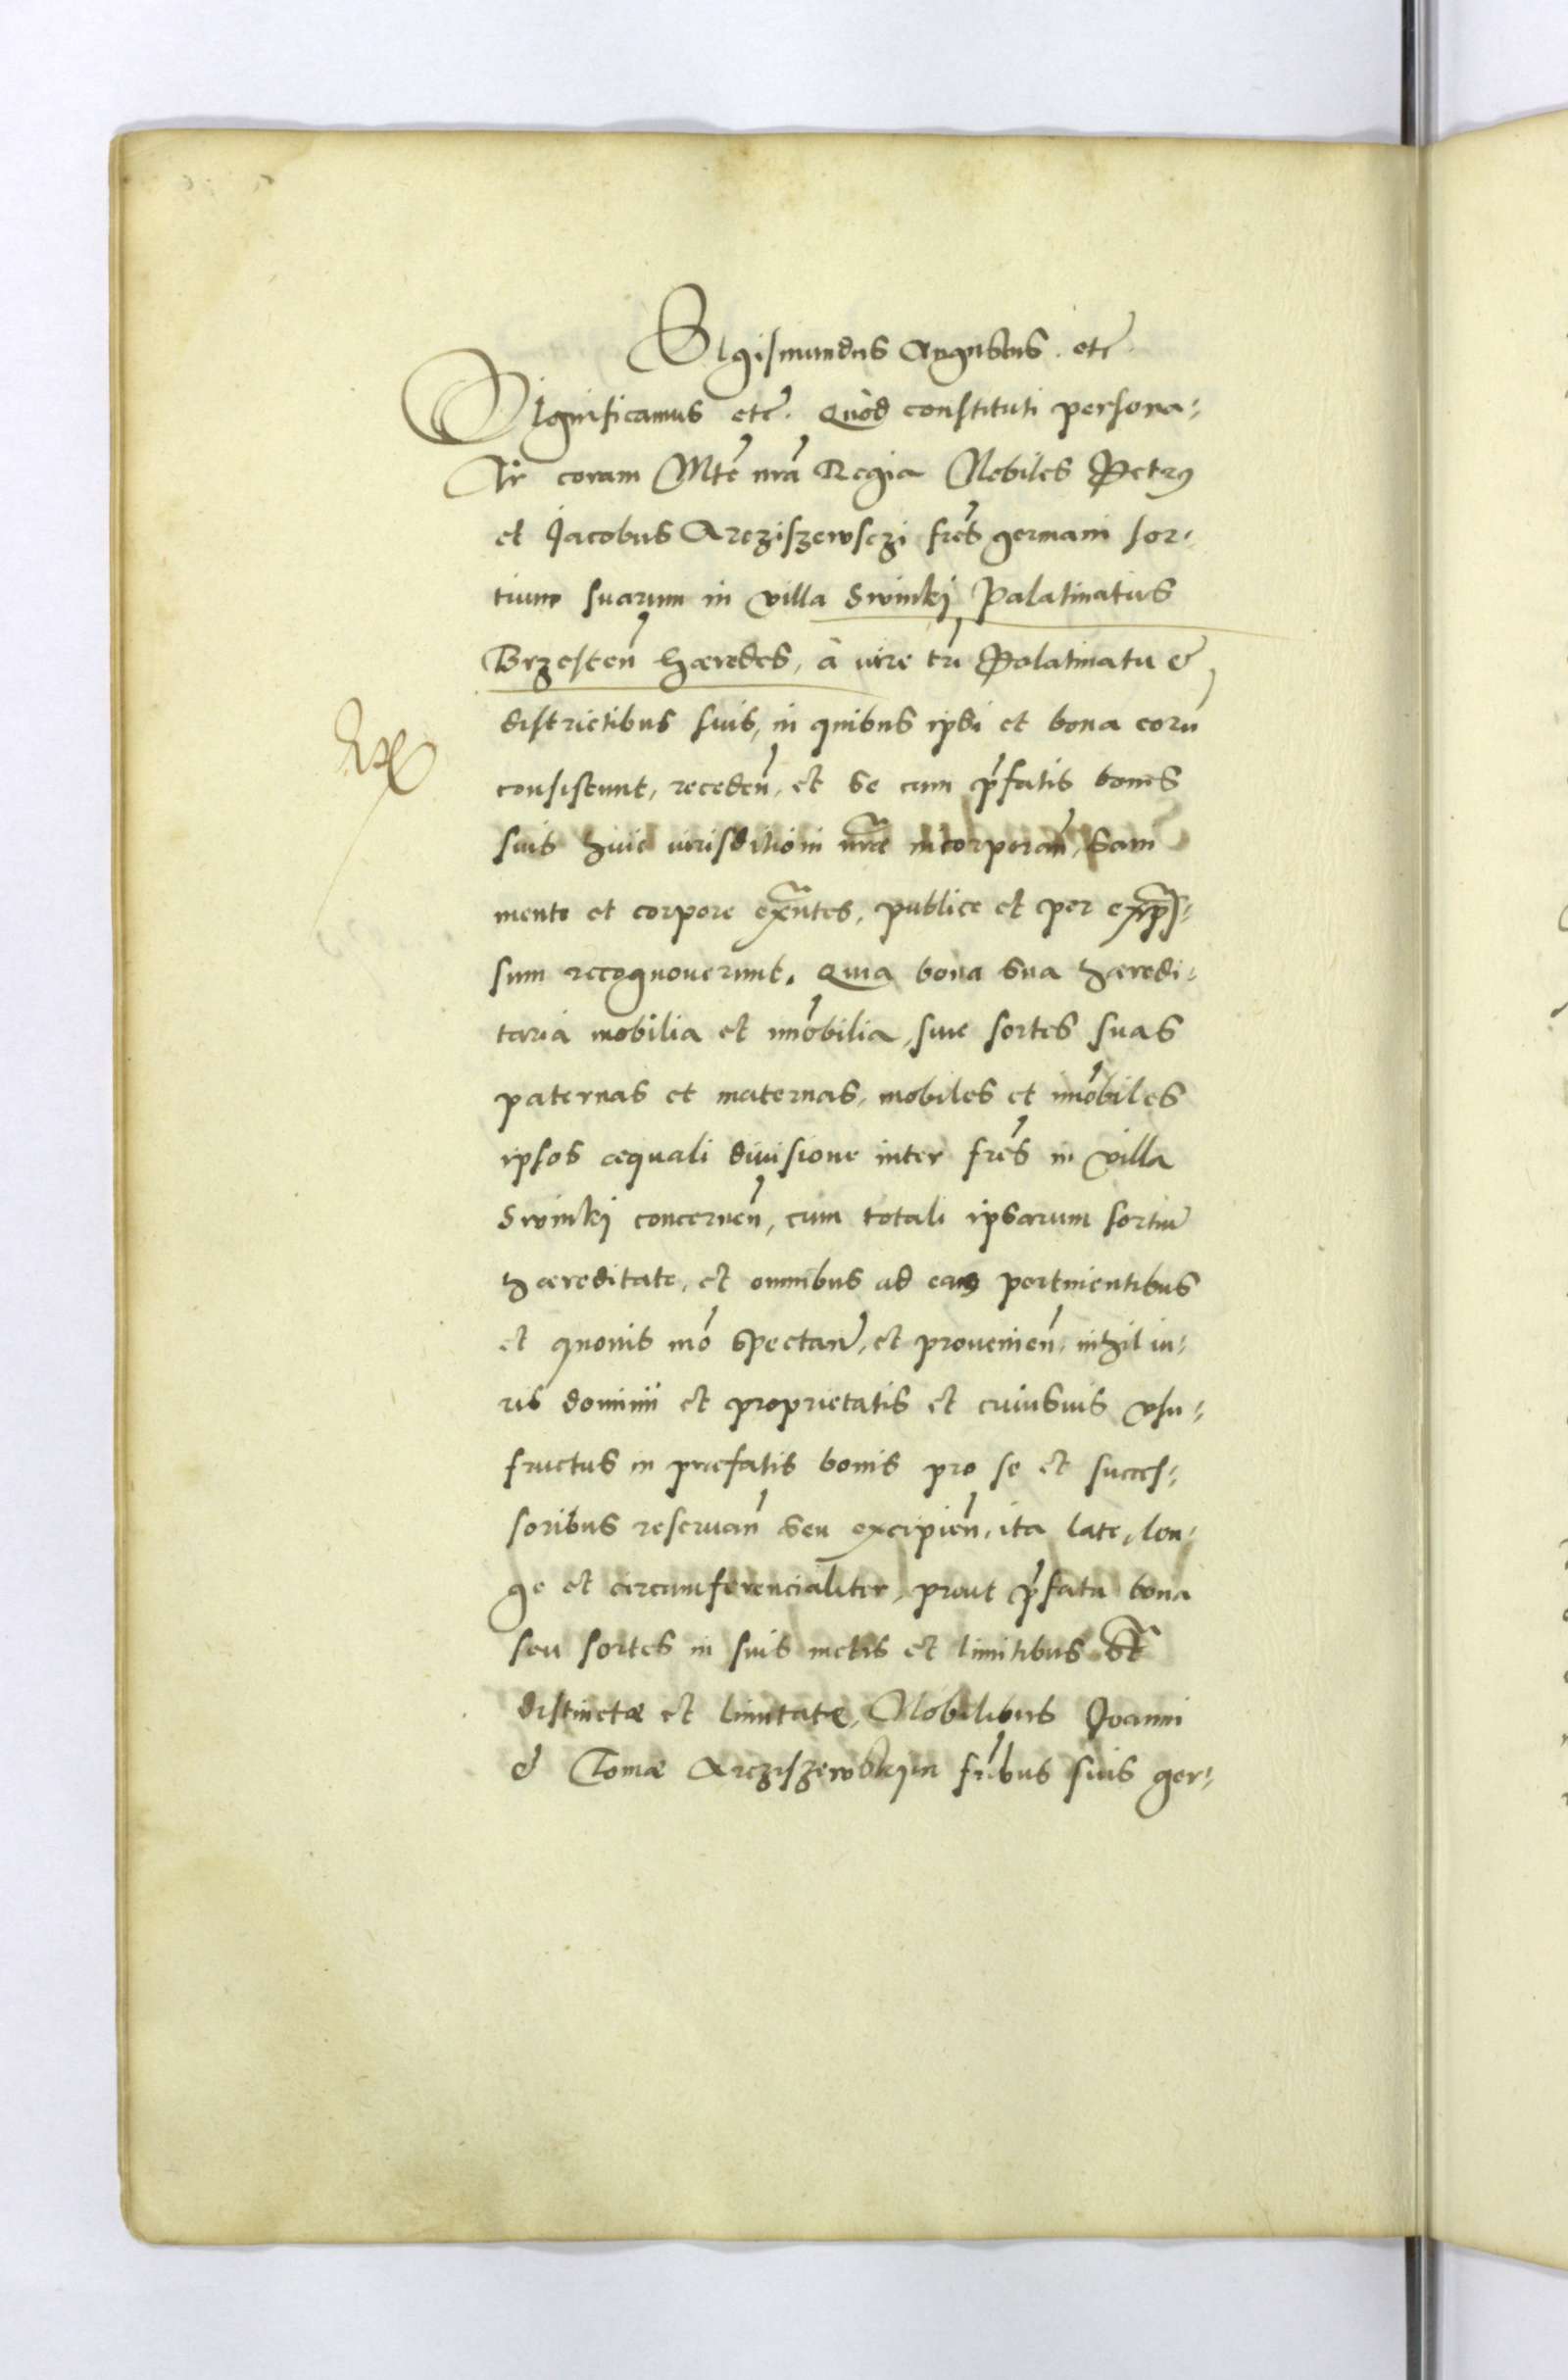 Sigismundus Augustus. etc̃
Significamus etc̃. Quòd constituti persona-
lr̃ coram Mte͂ nr̃a Regia Nobiles Petrꝰ
et Jacobus Arcziszewsczi fre͂s germani sor-
tium suarum in villa Swinkj Palatinatus
Brzesten̄ hæredes, à iure tn̄ Palatinatu &
districtibus suis, in quibus ip̄si et bona eorū
consistunt, receden̄, et se cum p̄fatis bonis
suis huic iurisditioni nr̃æ incorporan̄, sani
mente et corpore exn̄tes, publice et per exp̄s-
sum recognouerunt. Quia bona sua hæredi-
taria mobilia et im̄obilia, siue sortes suas
paternas et maternas, mobiles et im̄obiles
ipsos æquali diuisione inter fre͂s in villa
Swinkj concernen̄, cum totali ipsarum sortiū
hæreditate, et omnibus ad eas pertinentibus
et quouis mō spectan̄, et prouenien̄, nihil iu-
ris dominii et proprietatis et cuiusuis vsu-
fructus in præfatis bonis pro se et succes-
soribus reseruan̄ seu excipien̄, ita late, lon-
ge et circumferencialiter, prout p̄fata bona
seu sortes in suis metis et limitibus sūt
distinctæ et limitatæ, Nobilibus Joanni
& Tomæ Arcziszewskim fr̄ibus suis ger-